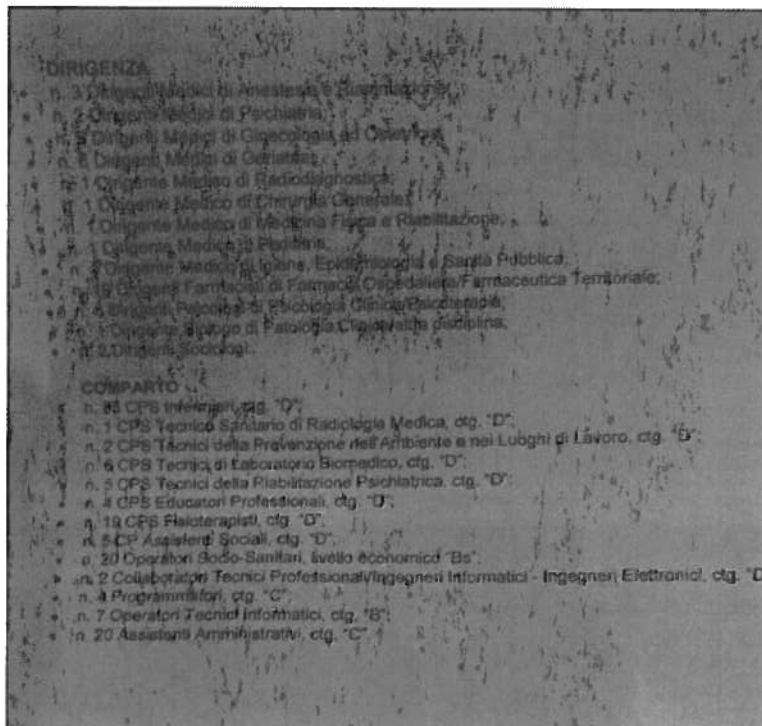 DIRIGENZA
n. 3 Dirigenti Medici di Anestesia e Rianimazione;
n. 2 Dirigenti Medici di Psichiatria;
n. Dirigenti Medici di Ginecologia ed Ostetricia;
n. 6 Dirigenti Medici di Geriatria;
n. 1 Dirigente Medico di Radiodiagnostica;
n. 1 Dirigente Medico di Chirurgia Generale;
n. 1 Dirigente Medico di Medicina Fisica e Riabilitazione;
n. 1 Dirigente Medico di Pediatria;
n. Dirigente Medico di Igiene, Epidemiologia e Sanità Pubblica;
n. Dirigenti Farmacisti di Farmacia Ospedaliera/Farmaceutica Territoriale;
n. Dirigenti Psicologi di Psicologia Clinica/Psicoterapia;
n. 1 Dirigente Biologo di Patologia Clinica/altra disciplina;
n. 2 Dirigenti Sociologi.
COMPARTO
n. CPS Infermieri, ctg. "D";
n. 1 CPS Tecnico Sanitario di Radiologia Medica, ctg. "D";
n. 2 CPS Tecnici della Prevenzione nell'Ambiente e nei Luoghi di Lavoro, ctg. "D";
n. 6 CPS Tecnici di Laboratorio Biomedico, ctg. "D";
n. 5 CPS Tecnici della Riabilitazione Psichiatrica, ctg. "D";
n. 4 CPS Educatori Professionali, ctg. "D";
n. 19 CPS Fisioterapisti, ctg. "D";
n. 5 CP Assistenti Sociali, ctg. "D";
n. 20 Operatori Socio-Sanitari, livello economico "Bs";
n. 2 Collaboratori Tecnici Professionali/Ingegneri Informatici - Ingegneri Elettronici, ctg. "D
n. 4 Programmatori, ctg. "C";
n. 7 Operatori Tecnici Informatici, ctg. "B";
n. 20 Assistenti Amministrativi, ctg. "C".